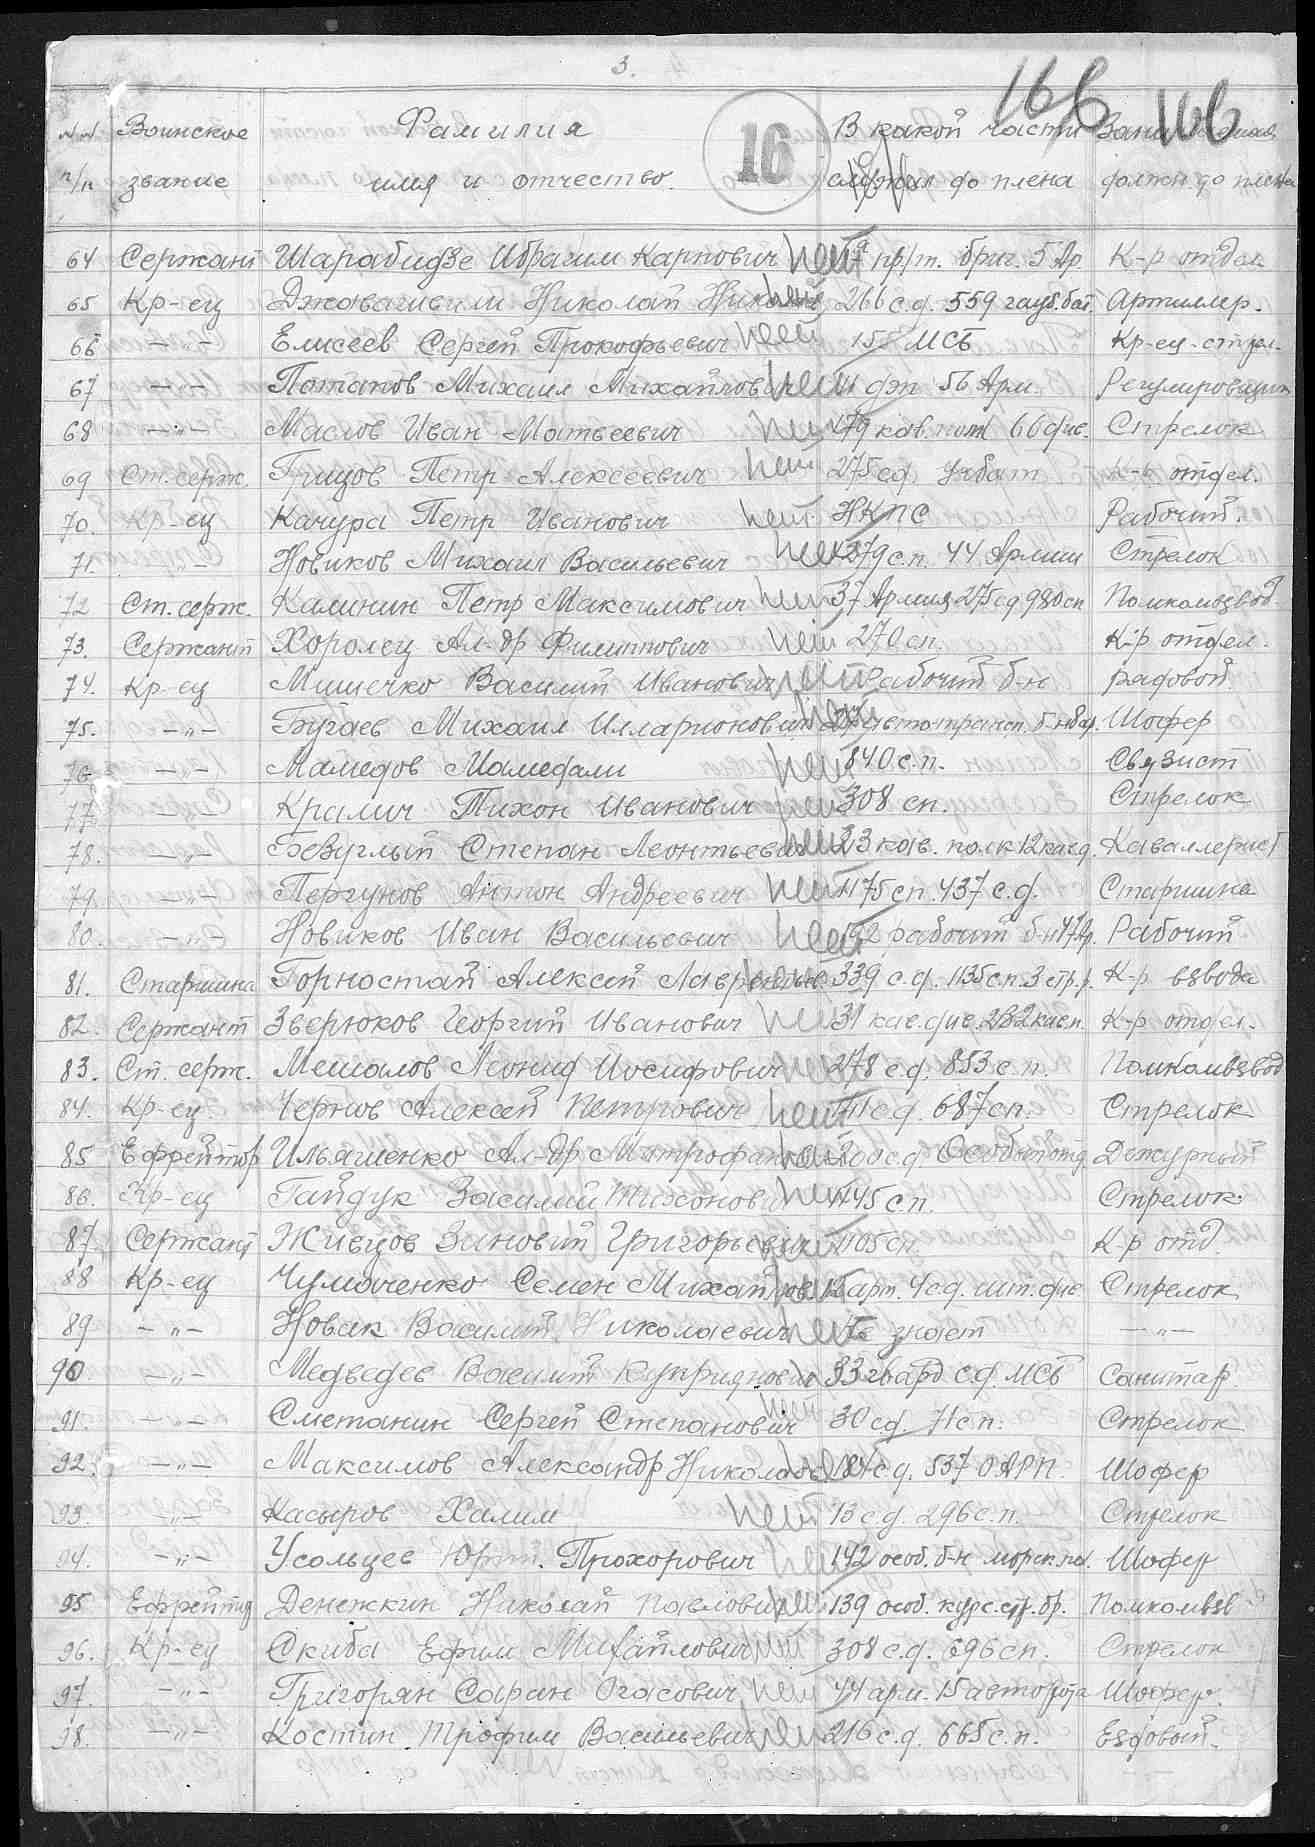 3.
166
166
16
№№ Воинское Фамилия В какой части
п/п звание имя и отчество. служил до плена должн. до плена
64 Сержант Шарабидзе Ибрагим Карпович нет бриг. 5 Ар. К-р отдел
65 Кр-ец Николай нет 266 с.д. 559 гауб. бат. Артиллер.
66 -"- Елисеев Сергей Прокофьевич нет 155 МСБ Кр-ец-стрел.
67 -"- Потапов Михаил Михайлович нет 56 Арм. Регулировщик
68 -"- Маслов Иван Матвеевич нет 179 кав. полк 66 див. Стрелок
69 Ст. серж. Грицов Петр Алексеевич нет 275 сд учбат К-р отдел.
70. Кр-ец Качура Петр Иванович нет НКПС Рабочий.
71. -"- Новиков Михаил Васильевич нет с.п. 44 Армии Стрелок
72 Ст. серж. Калинин Петр Максимович нет 37 Армия 275 сд 980 сп Помкомвзвод.
73. Сержант Хоролец Ал-др Филиппович нет 270 сп. К-р отдел.
74. Кр-ец Мишечко Василий Иванович нет Рабочий б-н рядовой
75. -"- Бугаев Михаил Илларионович нет Шофер
76 -"- Мамедов Мамедали нет 840 с.п. Связист
77. -"- Кралич Тихон Иванович нет 308 сп. Стрелок
78. -"- Безуглый Степан Леонтьевич нет 23 кав. полк 12 кав.д. Кавалерист
79. -"- Пергунов Антон Андреевич нет 1175 сп. 437 с.д. Старшина
80. -"- Новиков Иван Васильевич нет рабочий б-н Рабочий
81. Старшина Горностай Алексей нет 339 с.д. 1135 с.п. 3 стр.р. К-р взвода
82. Сержант Зверюков Георгий Иванович нет 31 кав. див. 282 кав.п. К-р отдел.
83. Ст. серж. Мешалов Леонид Иосифович нет 278 с.д. 853 с.п. Помкомвзвод
84. Кр-ец Чернов Алексей Петрович нет 141 с.д. 687 сп. Стрелок
85 Ефрейтор Ильяшенко Ал-др нет с.д. Особый отд. Дежурный
86. Кр-ец Гайдук Василий Тихонович нет 1145 с.п. Стрелок.
87. Сержант Живцов Зиновий Григорьевич нет 1105 сп. К-р отд.
88 Кр-ец Чумаченко Семен Михайлов. нет 4 с.д. Стрелок
89 -"- Новак Василий Николаевич не знает -"-
90 -"- Медведев Василий Куприянович 33 гвард с.д. МСБ Санитар.
91. -"- Сметанин Сергей Степанович нет 30 сд. 71 с.п. Стрелок
92. -"- Максимов Александр Николаев нет с.д. 537 ОАРП. Шофер
93. -"- Касыров Халим нет 13 с.д. 296 с.п. Стрелок
94. -"- Усольцев Юрий. Прохорович нет 142 особ. б-н морск. пех. Шофер
95 Ефрейтор Денежкин Николай Павлович нет 139 особ. курс. стр. бр. Помкомвзв
96. Кр-ец Скиба Ефим Михайлович нет 308 с.д. 696 сп. Стрелок
97. -"- Григорян Саран Огасович нет 44 арм. 15 авторота Шофер.
98. -"- Костин Трофим Васильевич нет 216 с.д. 665 с.п. Ездовый.